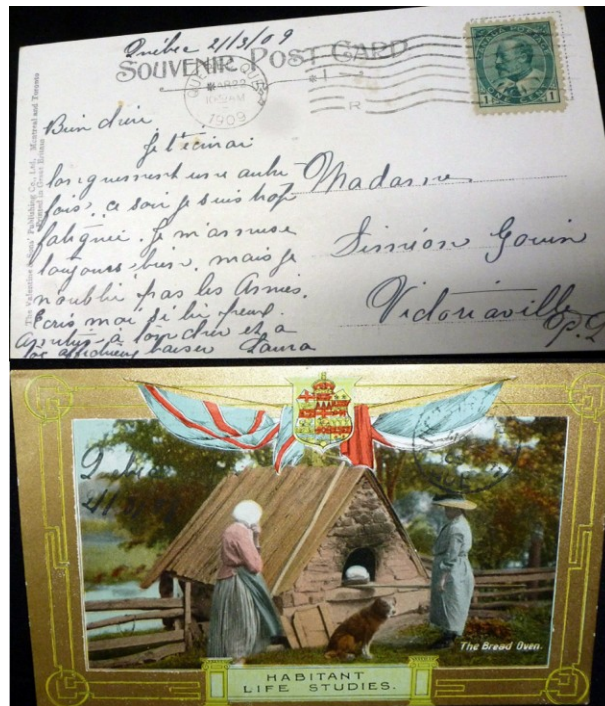 Québec 21/3/09
SOUVENIR POST CARD
CANADA POSTAGE
QUEBEC, QUE.
MAR 22
1909
R
The Valentine & Sons' Publishing Co., Ltd., Montreal and Toronto
Printed in Great Britain
Bien chère
Je t'écrirai
longuement une autre
fois, ce soir je suis trop
fatiguée. Je m'amuse
toujours bien, mais je
n'oublie pas les
Ecris moi si tu peux.
à ton cher et a
baiser Laura
Madame
Siméon Gouin
Victoriaville
P.Q.
The Bread Oven.
HABITANT
LIFE STUDIES.